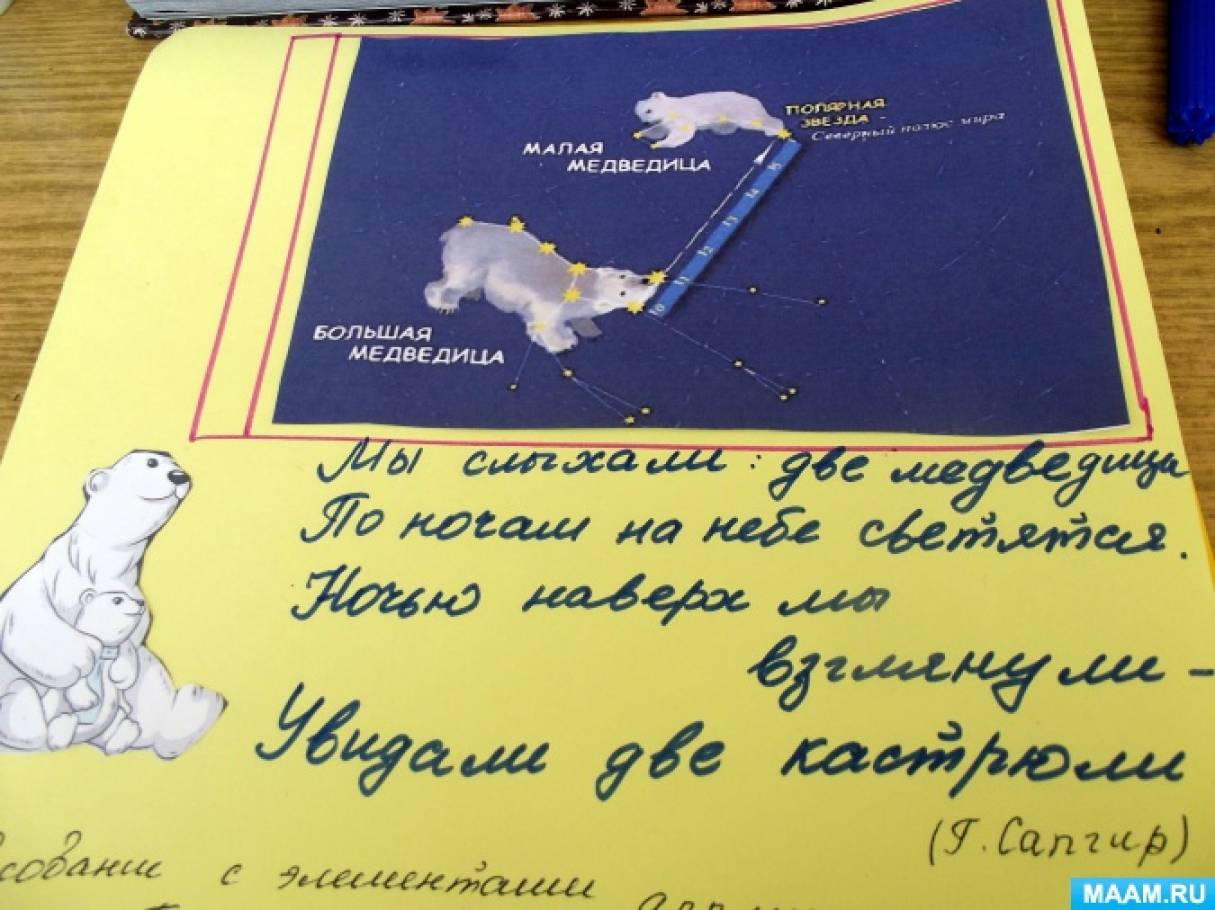 ПОЛЯРНАЯ
ЗВЕЗДА -
Северный полюс мира
МАЛАЯ
МЕДВЕДИЦА
15
14
13
12
11
10
БОЛЬШАЯ
МЕДВЕДИЦА
Мы слыхали: две медведицы
По ночам на небе светятся.
Ночью наверх мы
взглянули -
Увидали две кастрюли
(Г. Сапгир)
с элементами
MAAM.RU